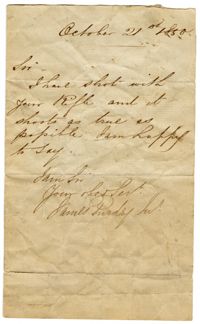 October 21st 1850.
Sir
I have shot with
your Rifle and it
shoots as true as
possible I am happy
to say.
I am Sir
Your obt Sert
James Purdey